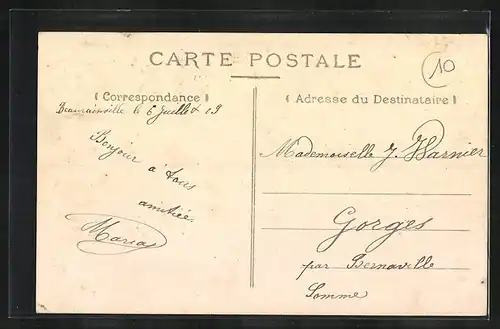 CARTE POSTALE
10
( Correspondance )
( Adresse du Destinataire )
Beaurainville le 6 Juillet 09
Bonjour à tous
amitiée.
Maria
Mademoiselle J. Warnier
Gorges
par Bernaville
Somme